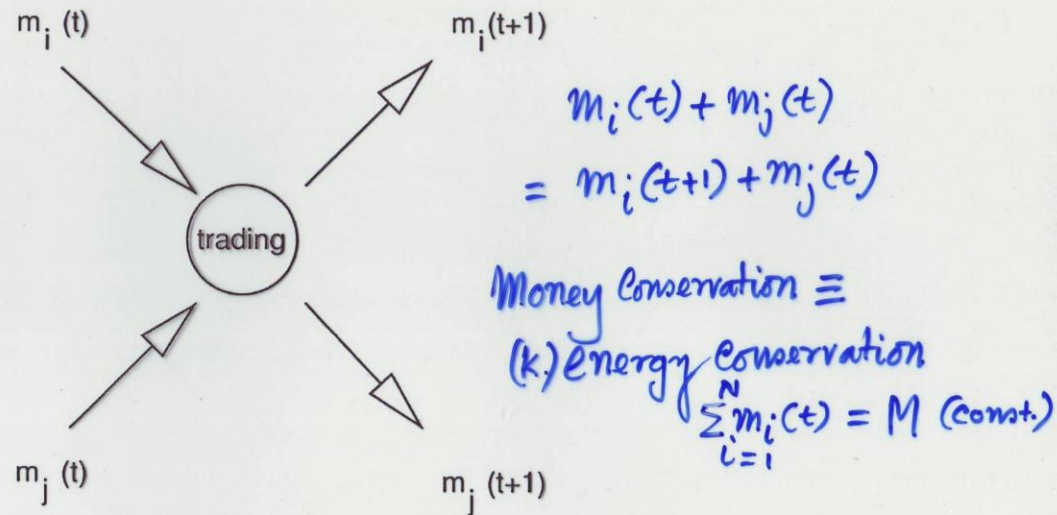 m_i (t)
m_i(t+1)
trading
m_j (t)
m_j (t+1)
m_i(t) + m_j(t)
= m_i(t+1) + m_j(t)
Money Conservation ≡
(k.) energy conservation
∑_{i=1}^{N} m_i(t) = M (const.)